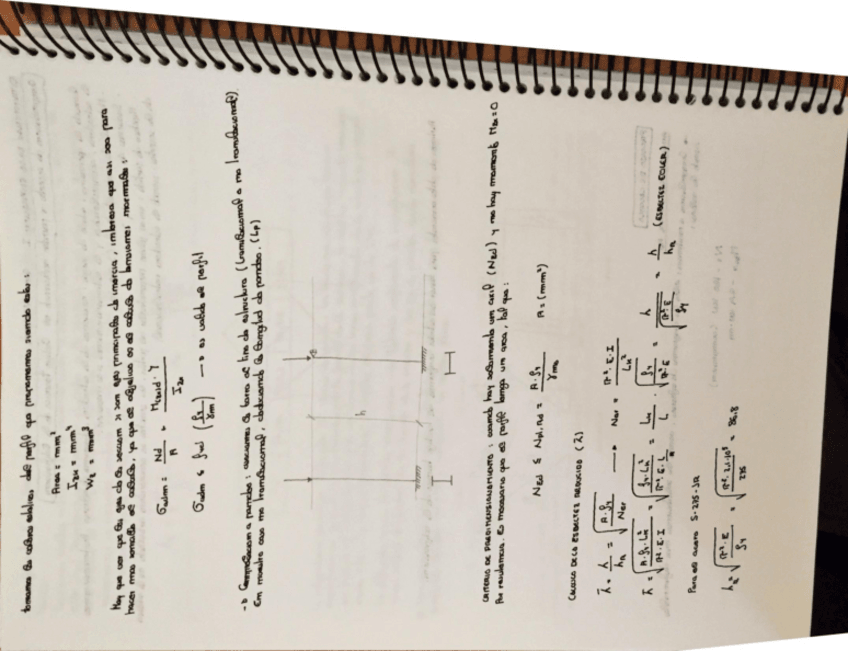 tomamos los valores estáticos del perfil que proponemos siendo estos:
Area = mm²
Izx = mm⁴
Wz = mm³
Hay que ver que los ejes de la sección si son ejes principales de inercia, interesa que así sea para
hacer mas sencillo el cálculo, ya que el objetivo es el cálculo de tensiones normales:
σadm = Nd / A + Mz(sd) · Y / Izx
σadm ≤ fyd (fy / γm) → es valido el perfil
→ Comprobación a pandeo: asociamos la barra al tipo de estructura (translacional o no translacional).
En nuestro caso no translacional, obteniendo la longitud de pandeo. (Lp)
h
CRITERIO DE PREDIMENSIONAMIENTO: cuando hay solamente un axil (NEd) y no hay momento MEd = 0
Por resistencia. Es necesario que el perfil tenga un area, tal que:
NEd ≤ Npl,Rd = A · fy / γmo A = (mm²)
CALCULO DE LA ESBELTEZ REDUCIDA (λ̄)
λ̄ = λ / λR = √(A · fy / Ncr) → Ncr = π² · E · I / Lk²
λ̄ = √(A · fy · Lk² / π² · E · I) = √(fy · Lk² / π² · E · i²) = Lk / i · √(fy / π² · E) = λ / √(π² · E / fy) = λ / λR (ESBELTEZ EULER)
Para el acero S-275-JR
λR = √(π² · E / fy) = √(π² · 2,1 · 10⁵ / 275) = 86.8